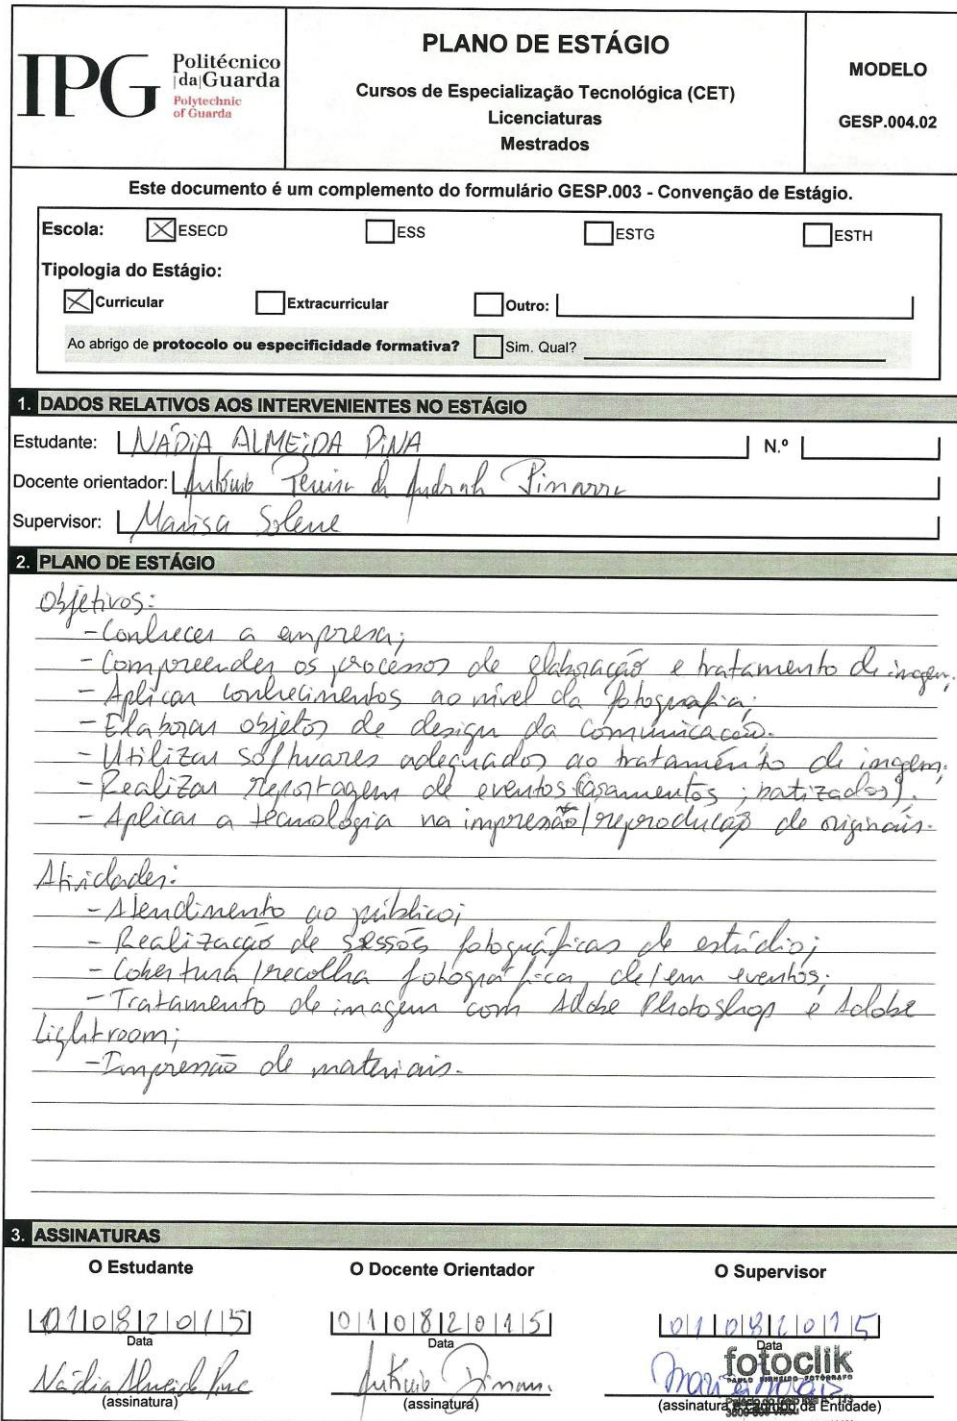 IPG Politécnico
|da|Guarda
Polytechnic
of Guarda
PLANO DE ESTÁGIO
Cursos de Especialização Tecnológica (CET)
Licenciaturas
Mestrados
MODELO
GESP.004.02
Este documento é um complemento do formulário GESP.003 - Convenção de Estágio.
Escola: ESECD ESS ESTG ESTH
Tipologia do Estágio:
Curricular Extracurricular Outro:
Ao abrigo de protocolo ou especificidade formativa? Sim. Qual?
1. DADOS RELATIVOS AOS INTERVENIENTES NO ESTÁGIO
Estudante: NÁDIA ALMEIDA PINA N.º
Docente orientador: António Pereira de Andrade Pissarra
Supervisor: Marisa Solene
2. PLANO DE ESTÁGIO
Objetivos:
- Conhecer a empresa;
- Compreender os processos de elaboração e tratamento de imagem;
- Aplicar conhecimentos ao nível da fotografia;
- Elaborar objetos de design da comunicação.
- Utilizar softwares adequados ao tratamento de imagem;
- Realizar reportagem de eventos (casamentos; batizados).
- Aplicar a tecnologia na impressão/reprodução de originais.
Atividades:
- Atendimento ao público;
- Realização de sessões fotográficas de estúdio;
- Cobertura/recolha fotográfica de/em eventos;
- Tratamento de imagem com Adobe Photoshop e Adobe
Lightroom;
- Impressão de materiais.
3. ASSINATURAS
O Estudante O Docente Orientador O Supervisor
01|08|2015 01|08|2015 01|08|2015
Data Data Data
fotoclik
PAULO PINHEIRO-FOTÓGRAFO
Nádia Almeida Pina António
(assinatura) (assinatura) (assinatura e carimbo da Entidade)